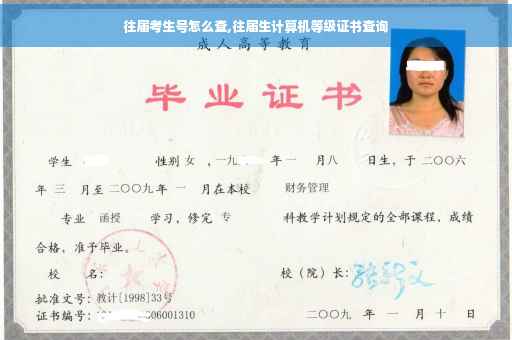 往届考生号怎么查,往届生计算机等级证书查询
成人高等教育
毕业证书
学生 性别 女 ,一九 年 一 月八 日生，于 二〇〇六
年 三 月至 二〇〇九 年 一 月在本校 财务管理
专业 函授 学习，修完 专 科教学计划规定的全部课程，成绩
合格，准予毕业。
校 名：
校（院）长：
批准文号：教计[1998]33号
证书编号： 006001310
二〇〇九 年 一 月 十 日